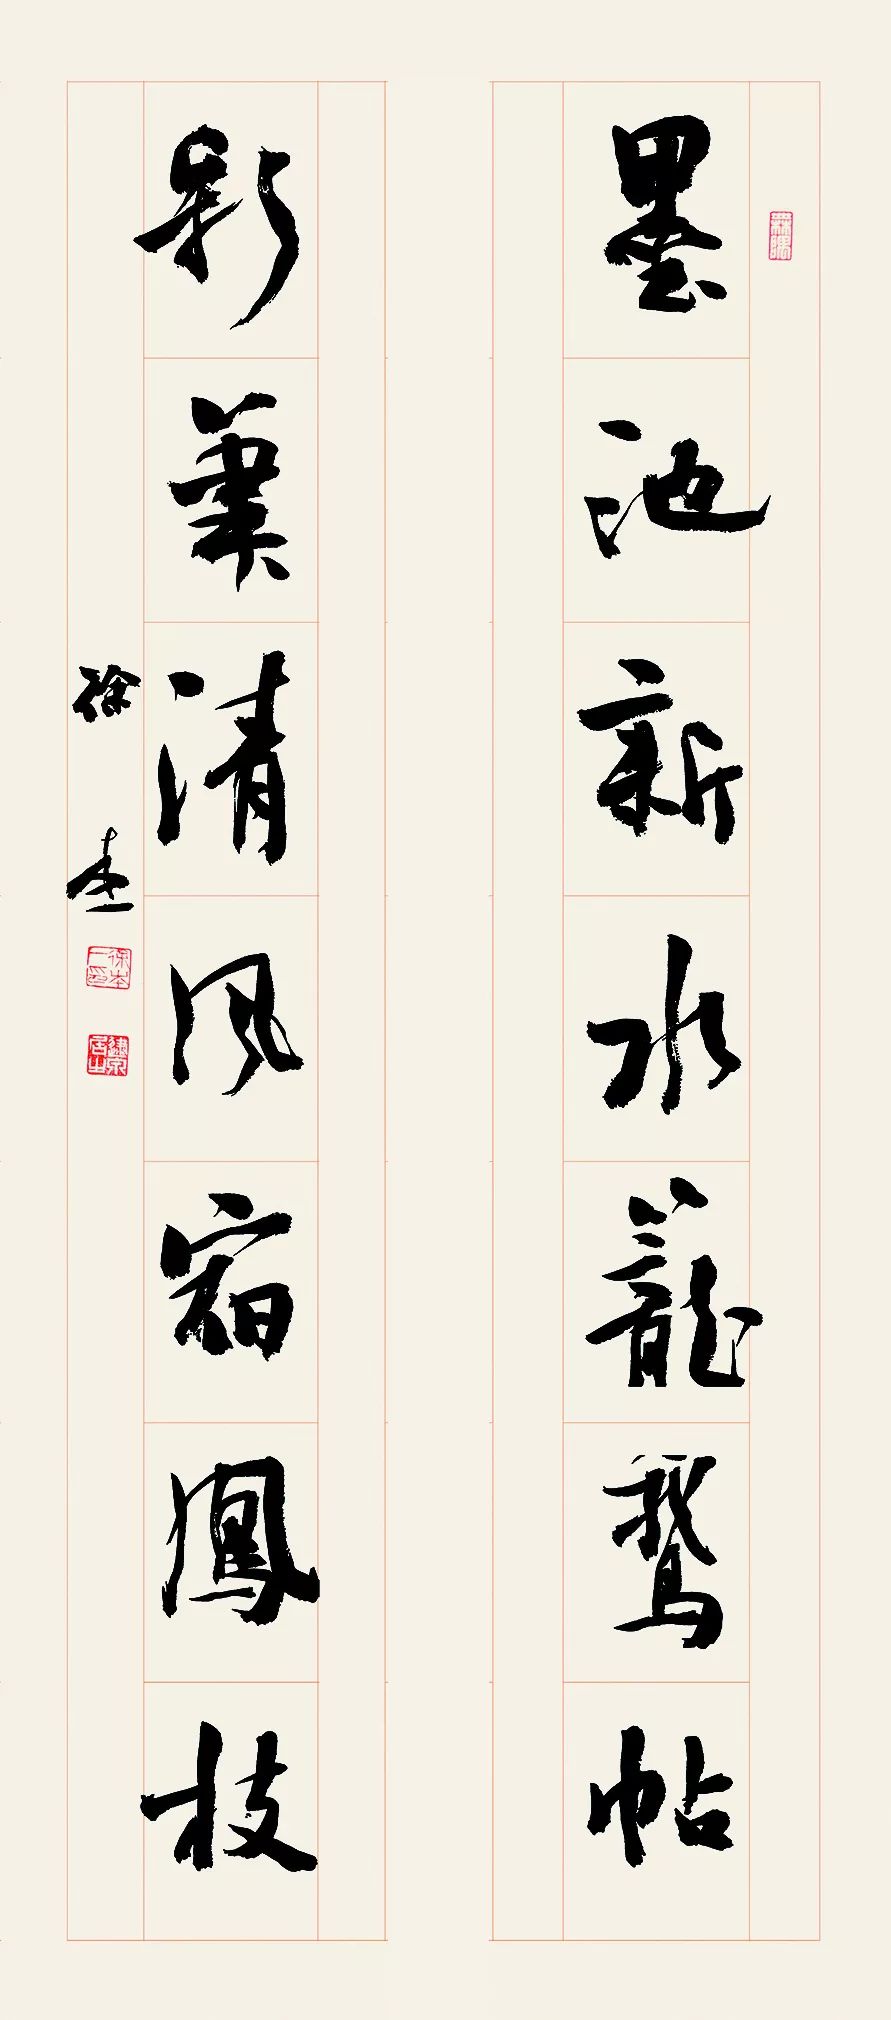 墨池新水籠鵞帖
彩筆清風宿鳳枝
徐本
徐本一印